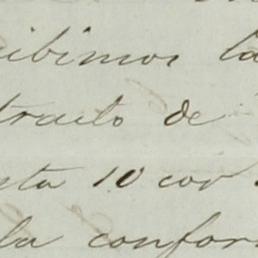 ibimos la
tracto de
sta 10 cor
la confor